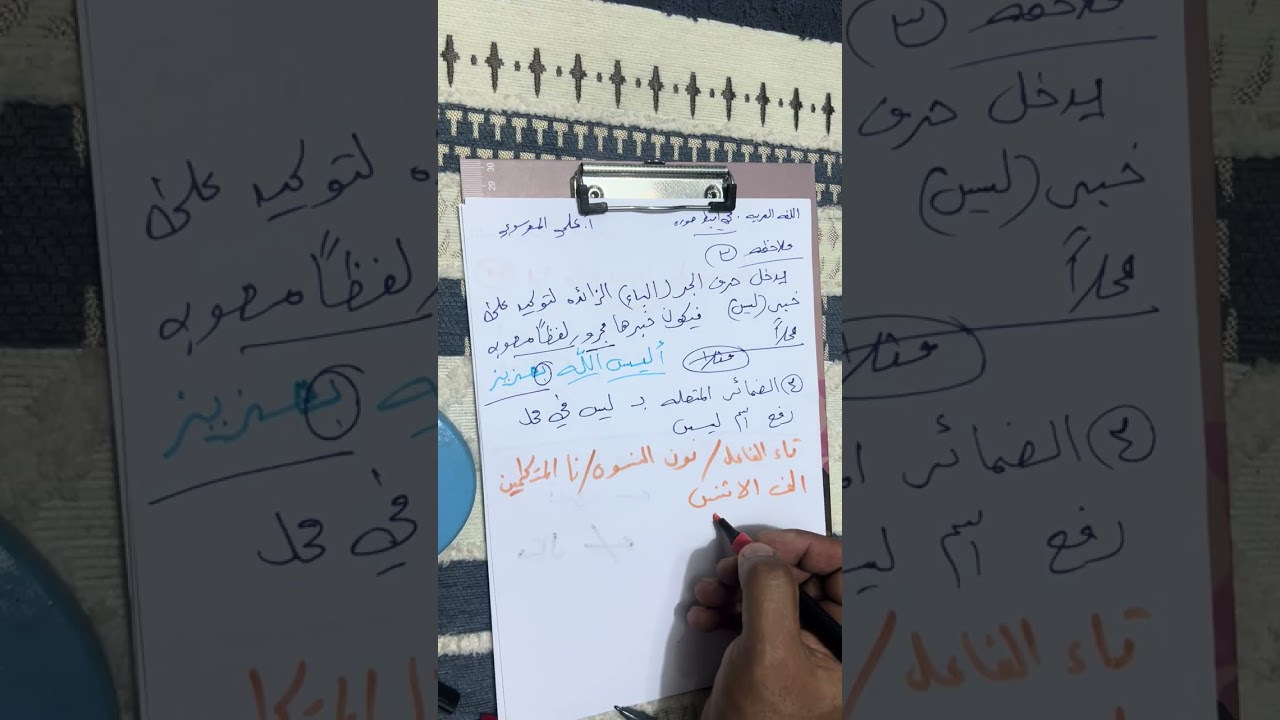 اللغه العربيه . في ابسط صوره أ. علي الموسوي
ملاحظه ٣
يدخل حرف الجر (الباء) الزائده لتوكيد على
خبر (ليس) فيكون خبرها مجرور لفظاً منصوب
محلاً مثلا أليس الله بعزيز
٤ الضمائر المتصله بـ ليس في محل
رفع اسم ليس
تاء الفاعل / نون النسوه / نا المتكلمين
الف الاثنين